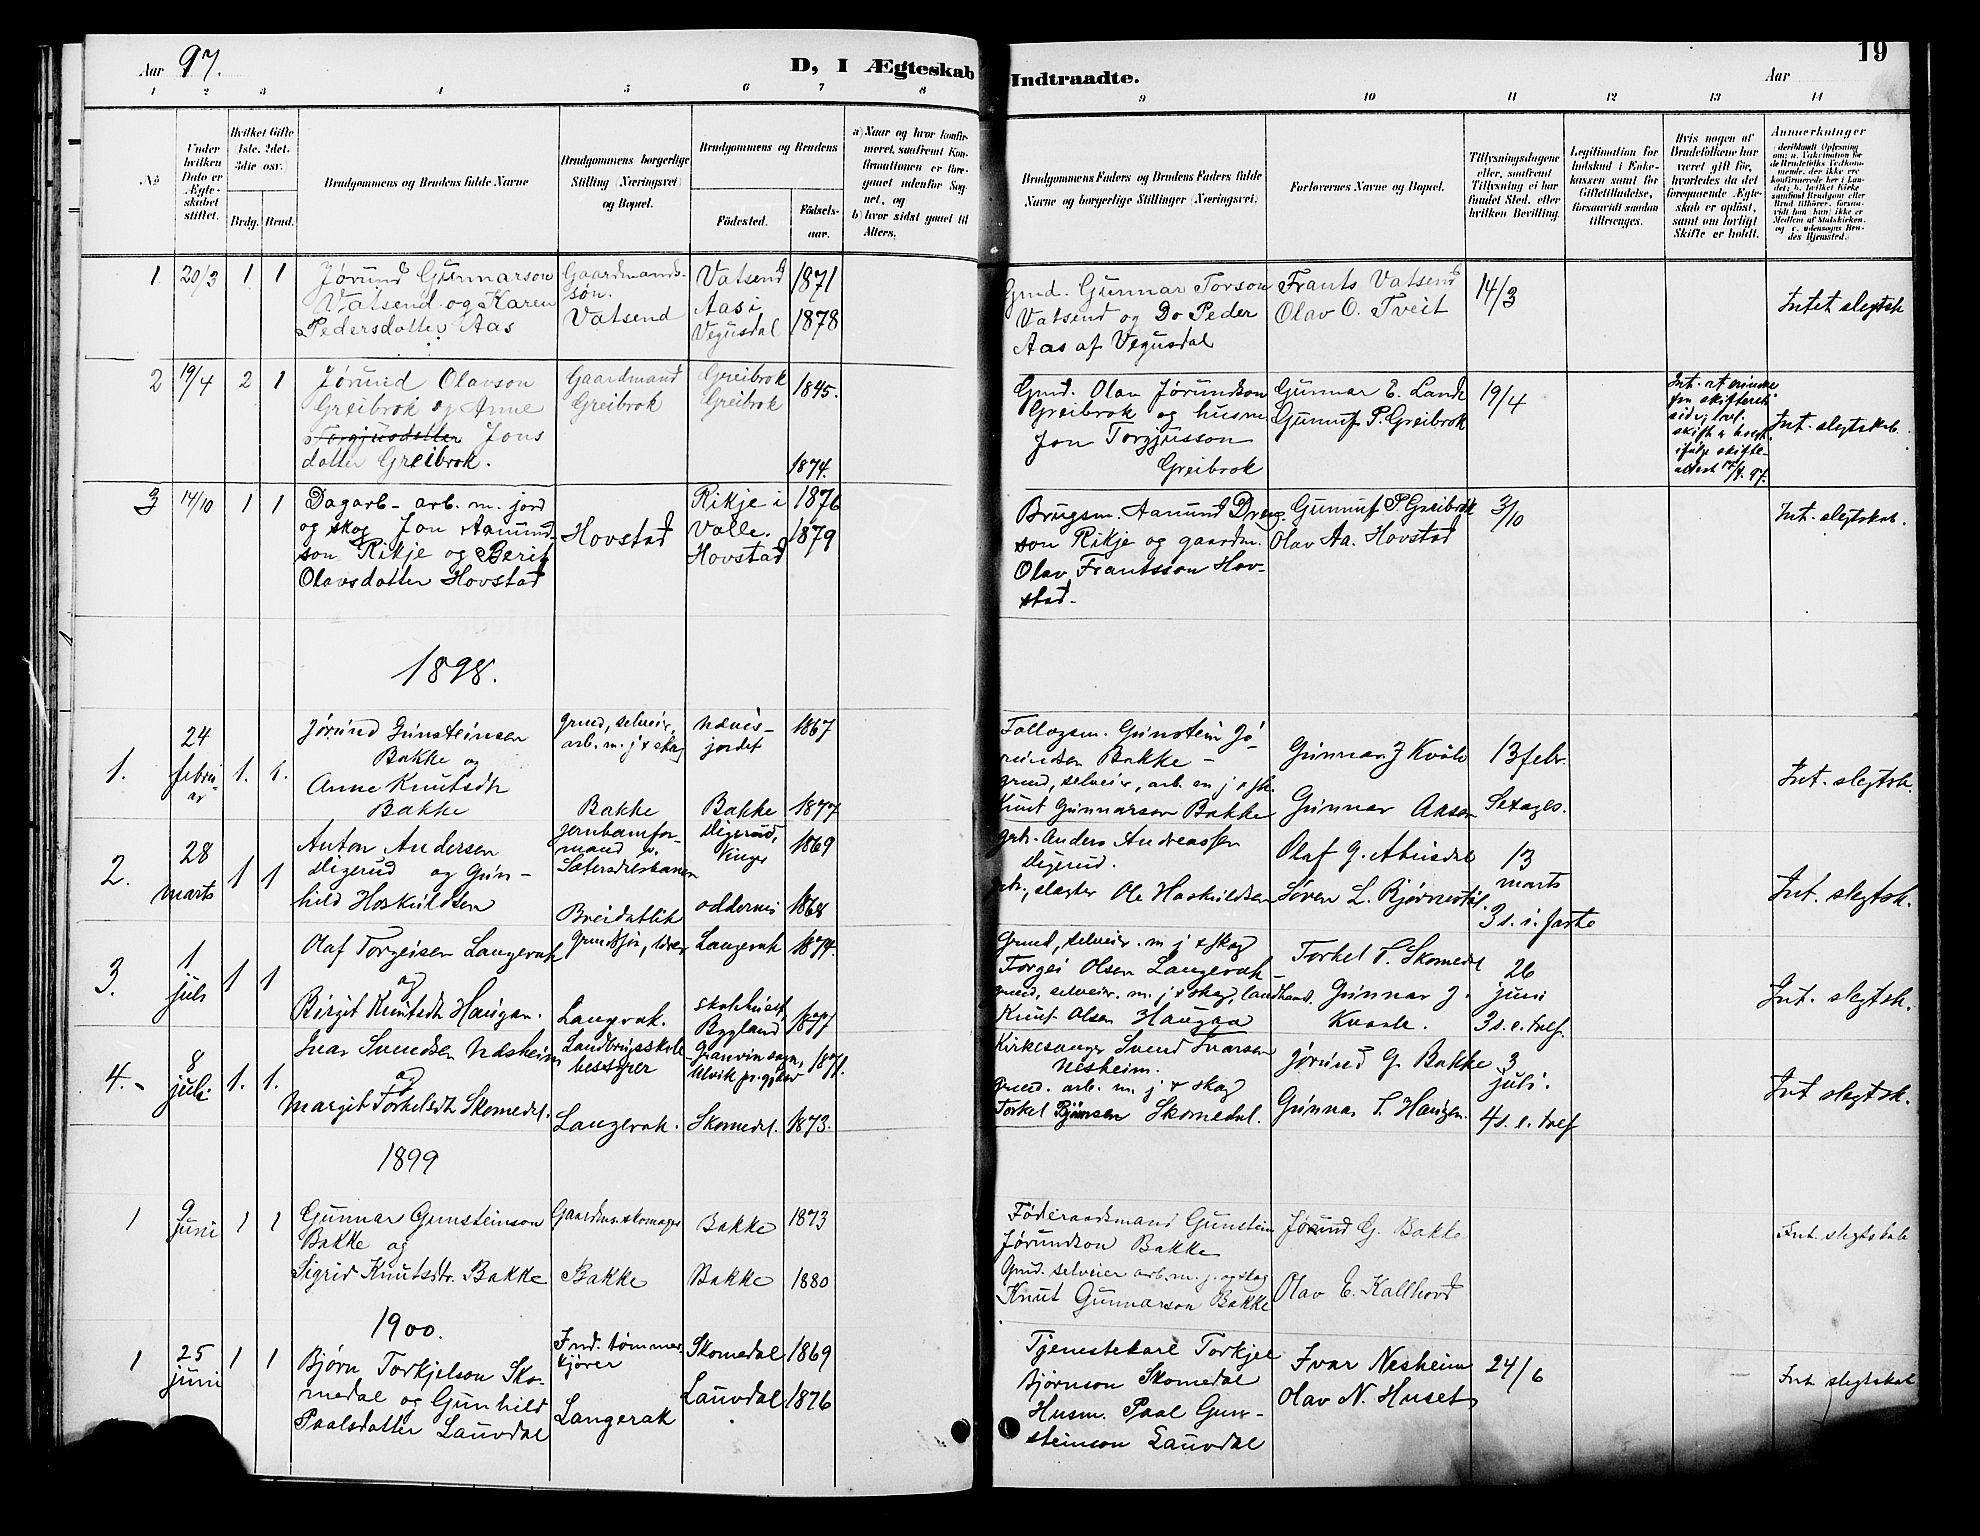 Aar 97.
D, I Ægteskab Indtraadte.
Aar
19
1 2 3 4 5 6 7 8 9 10 11 12 13 14
No
Under hvilken Dato er Ægteskabet stiftet.
Hvilket Gifte 1ste. 2det. 3die osv.
Brdg. Brud.
Brudgommens og Brudens fulde Navne
Brudgommens borgerlige Stilling (Næringsvei) og Bopæl.
Brudgommens og Brudens
Fødested.
Fødselsaar.
a) Naar og hvor konfirmeret, saafremt Konfirmationen er foregaaet udenfor Sognet, og
b) hvor sidst gaaet til Alters.
Brudgommens Faders og Brudens Faders fulde Navne og borgerlige Stillinger (Næringsvei).
Forlovernes Navne og Bopæl.
Tillysningsdagene eller, saafremt Tillysning ei har fundet Sted, efter hvilken Bevilling.
Legitimation for Indskud i Enkekassen samt for Giftetilladelse, forsaavidt saadan tiltrænges.
Hvis nogen af Brudefolkene har været gift før, hvorledes da det foregaaende Ægteskab er opløst, samt om lovligt Skifte er holdt.
Anmærkninger
1 20/3 1 1
Jørund Gunnarson
Vatsend og Karen
Pedersdatter Aas
Gaardmands-
søn.
Vatsend
Vatsend
Aas i
Vegusdal
1871
1878
Gmd. Gunnar Torson
Vatsend og Do Peder
Aas af Vegusdal
Frants Vatsend
Olav O. Tveit
14/3
Intet slegtsk
2 19/4 2 1
Jørund Olavson
Greibrok og Anne
Torgjusdatter Jons
datter Greibrok.
Gaardmand
Greibrok
Greibrok
Greibrok
1845.
1874.
Gmd. Olav Jørundson
Greibrok og husm
Jon Torgjusson
Greibrok
Gunnar E. Landt
Gunnuf P. Greibrok
19/4
Int. at erindre
fra skifteret
side;
skifte
ifølge skifte-
attest
Int. slegtskab.
3 14/10 1 1
Dagarb- arb. m. jord
og skog Jon Aamund
son Rikje og Berit
Olavsdatter Hovstad
Hovstad
Rikje i
Valle.
Hovstad
1876
1879
Brugsm. Aanund Dreng
son Rikje og gaardm.
Olav Frantsson Hov-
stad.
Gunnuf P Greibrok
Olav Aa. Hovstad
3/10
Int. slegtskab.
1898.
1. 24 februar 1. 1.
Jørund Gunsteinsen
Bakke og
Anne Knutsdtr
Bakke
grmd, selveier,
arb. m. j & skog
Bakke
jordet
Bakke
1867
1877
Follogsm. Gunstein Jø-
rundsen Bakke -
grmd, selveier, arb. m j & sk.
Knut Gunnarsen Bakke
Gunnar J Kvåle
Gunnar Aasen
13 febr.
Setages.
Int. slegtsk.
2. 28 marts 1 1
Anton Andersen
Digerud og Gun-
hild Haskuldsen
jernbanfor-
mand v.
Sætersdelsbanen
Breidablik
Digerud,
Vinger
Oddernes
1869
1868
gbr. Anders Andreassen
Digerud.
gbr., slagter Ole Haskuldsen
Olaf G. Abusdal
Søren L. Bjørnestøl.
13
marts
3 s. i. faste
Int. slegtsk.
3. 1 juli 1 1
Olaf Torgeisen Langerak
og
Birgit Knutsdtr Haugan.
Langerak.
Langerak
Bygland
1874.
1877
Grmd, selveier. m j & skog
Torgei Olsen Langerak -
grmd, selveier. m. j & skog, landhand.
Knut Olsen Haugaa
Torkel T. Skomedal
Gunnar J.
Kvaale.
26
juni
3 s. e. tref.
Int. slegtsk.
4. - 8 juli 1. 1.
Ivar Svendsen Næsheim
og
Margit Torkelsdtr Skomedal.
Landbrugsskole-
bestyrer
Langerak.
Granvin sogn,
Ulvik pr.gjeld
Skomedal.
1871.
1873.
Kirkesanger Svend Ivarsen
Nesheim.
grmd. arb. m. j & skog
Torkel Bjørnsen Skomedal.
Jørund G. Bakke
Gunnar T. Haugen.
3
juli.
4 s. e. tref
Int slegtsk.
1899
1 9 juni 1 1
Gunnar Gunsteinson
Bakke og
Sigrid Knutsdtr. Bakke
Gaardm. skomager
Bakke
Bakke
Bakke
1873
1880
Föderaadsmand Gunstein
Jørundson Bakke
Gmd. selveier arb. m. j. og skog
Knut Gunnarson Bakke
Jørund G. Bakke
Olav E. Kallhovd
Int. slegtskab
1900.
1 25 juni 1 1
Bjørn Torkjelson Sko-
medal og Gunhild
Paalsdatter Lauvdal
Ind. tømmer
kjører
Langerak
Skomedal
Lauvdal
1869
1876
Tjenestekarl Torkjel
Bjørnson Skomedal
Husm. Paal Gun-
steinson Lauvdal
Ivar Nesheim
Olav N. Huset
24/6
Int slegtskab